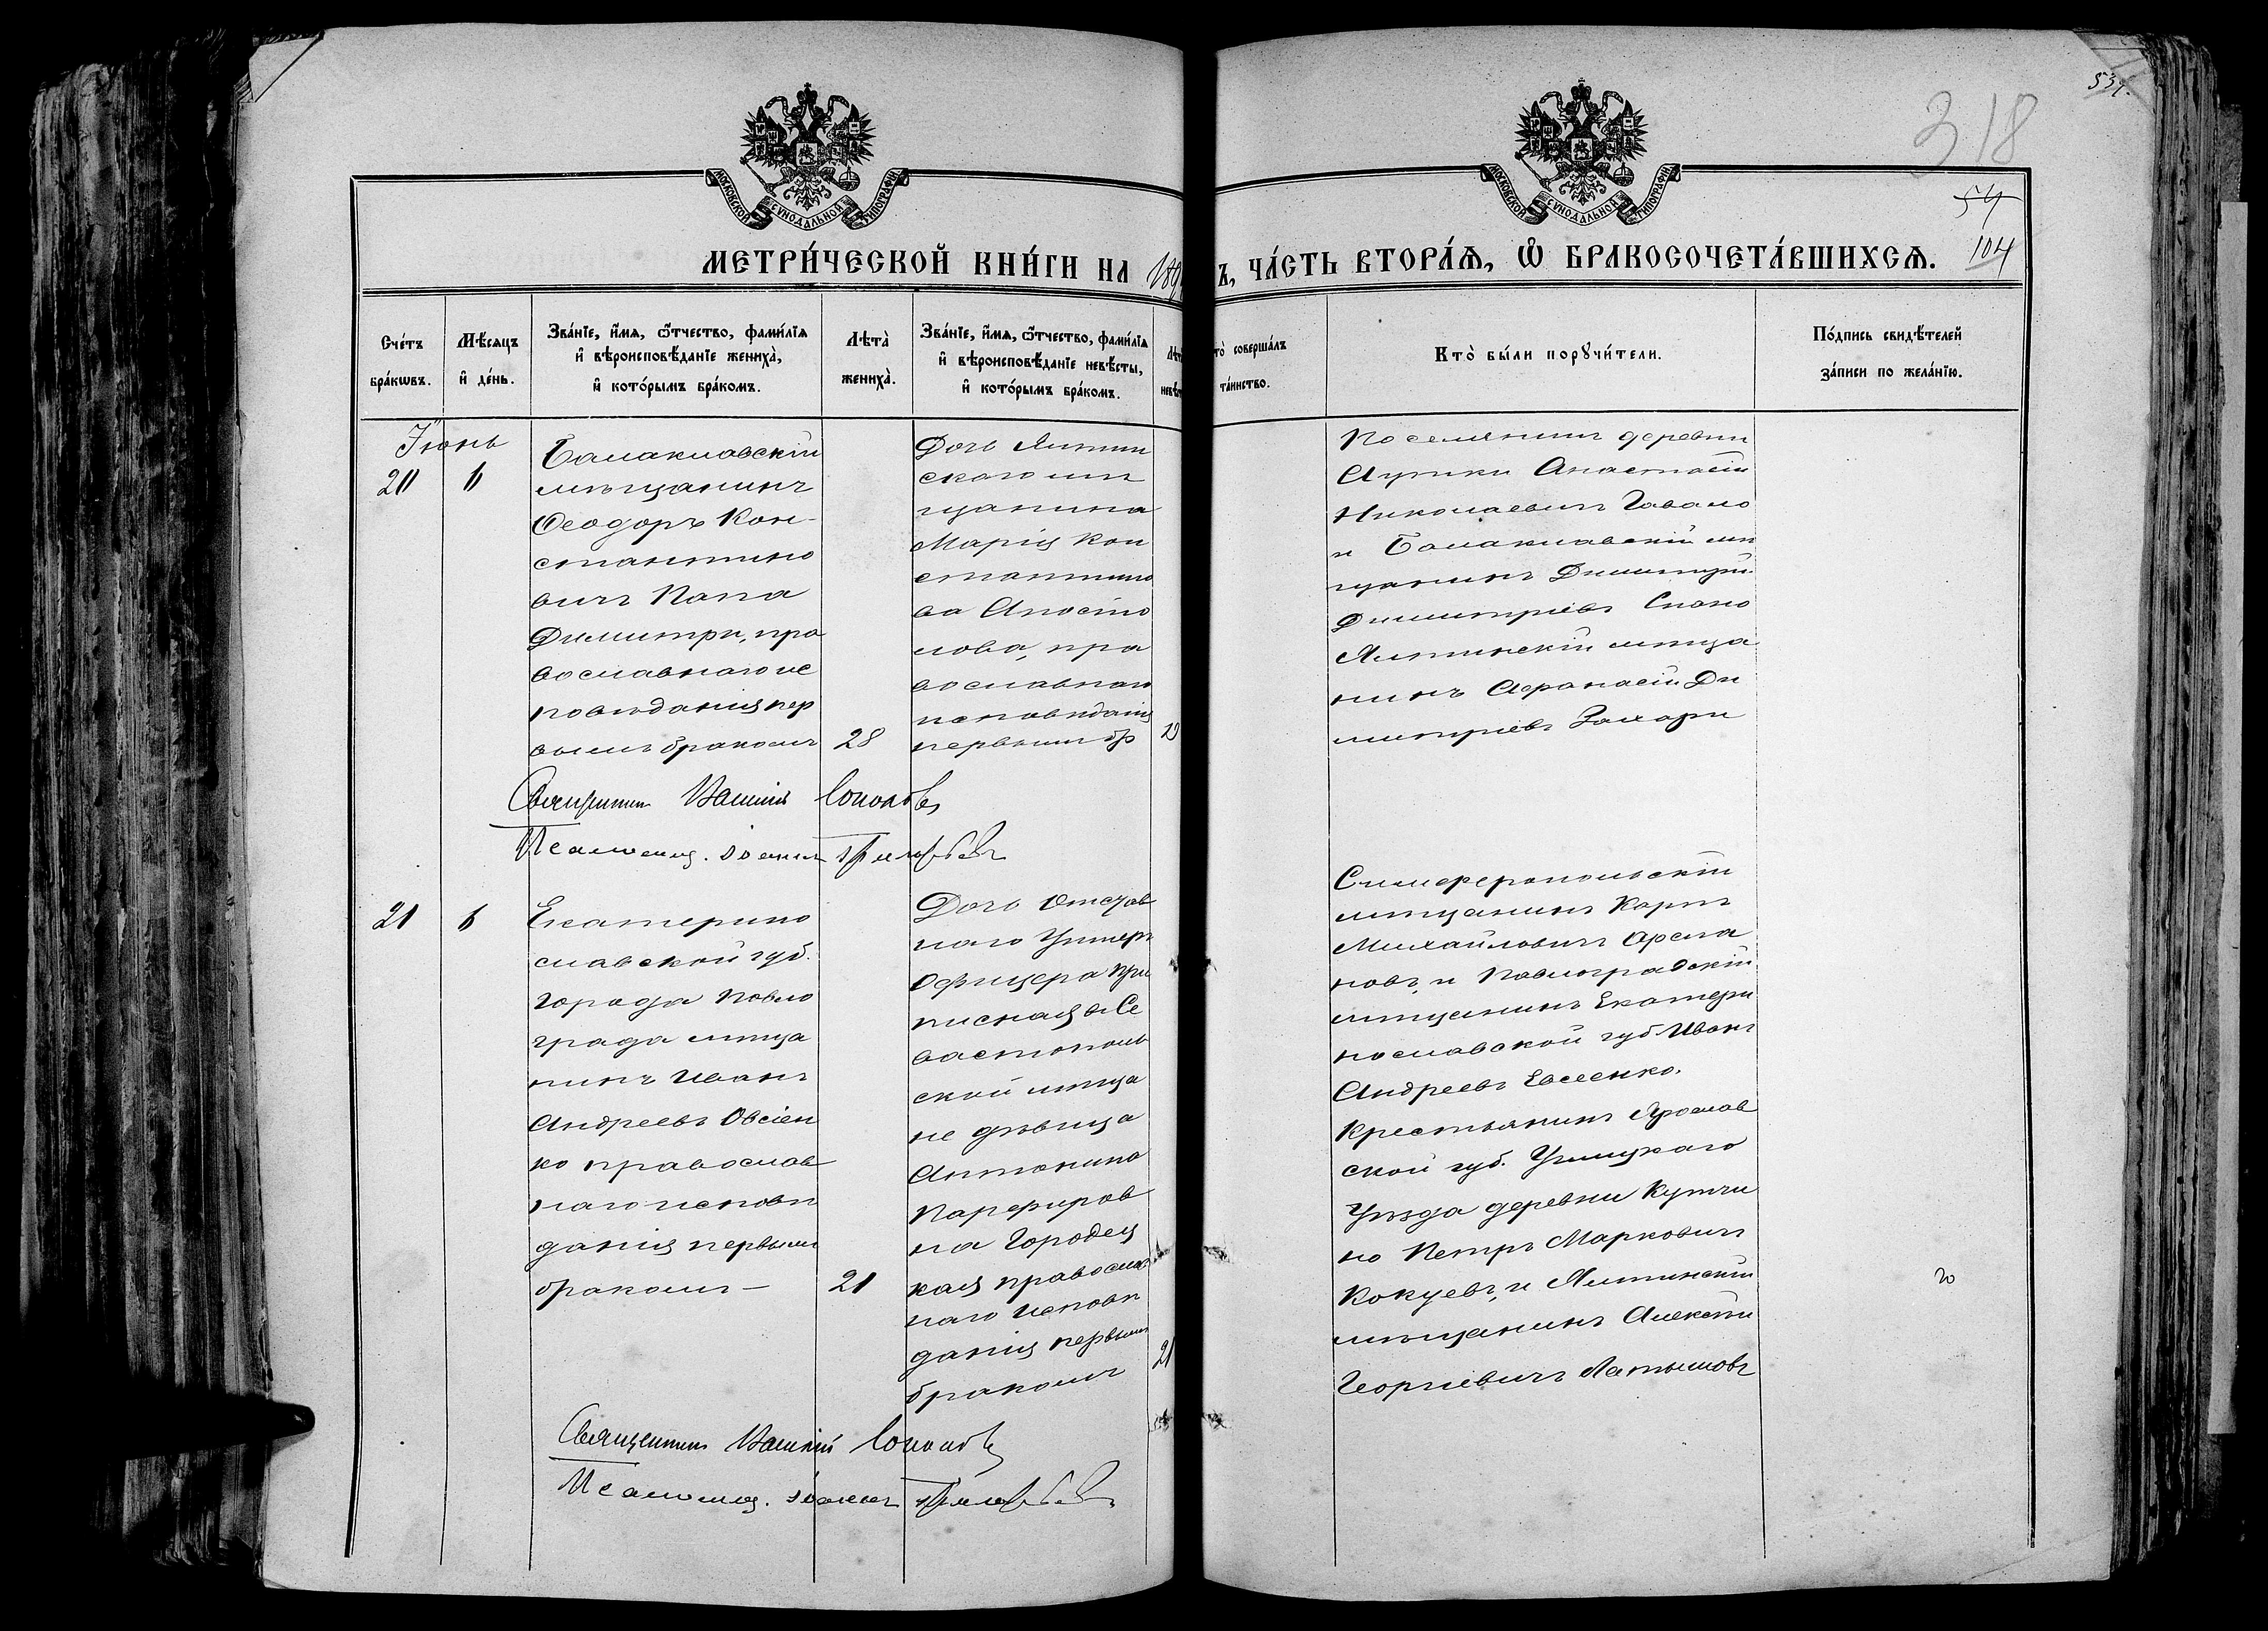 537.
318
МОСКОВСКОЙ СѴНОДАЛЬНОЙ ТИПОГРАФІИ
МОСКОВСКОЙ СѴНОДАЛЬНОЙ ТИПОГРАФІИ
54
104
МЕТРИ́ЧЕСКОЙ КНИ́ГИ НА 189
Ъ, ЧА́СТЬ ВТОРА́Я, Ѡ БРАКОСОЧЕТА́ВШИХСЯ.
Сче́тъ бра́кѡвъ.
Мѣ́сяцъ и де́нь.
Зва́нїе, и́мя, ѻ́тчество, фами́лїя и вѣроисповѣ́данїе жениха̀, и кото́рымъ бра́комъ.
Лѣта̀ жениха̀.
Зва́нїе, и́мя, ѻ́тчество, фами́лїя и вѣроисповѣ́данїе невѣ́сты, и кото́рымъ бра́комъ.
то̀ соверша́лъ та́инство.
Кто̀ бы́ли порꙋчи́тели.
По́дпись свидѣ́телей за́писи по жела́нїю.
Іюнь
20 6
Балаклавскій
мѣщанинъ
Ѳеодоръ Кон-
стантино
вичъ Папа
Димитри, пра
вославнаго ис
повѣданія пер
вымъ бракомъ
28
Дочь Ялтин
скаго мѣ
щанина
Марія Кон
стантино
ва Апосто
лова, пра
вославнаго
исповѣданія
первымъ бр
Поселянинъ деревни
Аутки Анастасій
Николаевичъ Гавало
и Балаклавскій мѣ
щанинъ Димитрій
Димитріевъ Спано
Ялтинскій мѣща
нинъ Афанасій Ди
митріевъ Захари
Священникъ Василій
21 6
Екатерино
славской губ.
города Павло
града мѣща
нинъ Иванъ
Андреевъ Овсіен
ко православ
наго исповѣ
данія первымъ
бракомъ —
21
Дочь Отстав
наго Унтеръ
Офицера при
писная въ Се
вастополь
ской мѣща
не дѣвица
Антонина
Парфиров
на Городец
кая православ
наго исповѣ
данія первымъ
бракомъ
21
Симферопольскій
мѣщанинъ Карпъ
Михайловичъ Арсла
новъ, и Павлоградскій
мѣщанинъ Екатери
нославской губ Иванъ
Андреевъ Евсеенко.
Крестьянинъ Ярослав
ской губ. Углицкаго
Уѣзда деревни
но Петръ Марковичъ
Кокуевъ, и Ялтинскій
мѣщанинъ Алексѣй
Георгіевичъ Латышовъ
Священникъ Василій